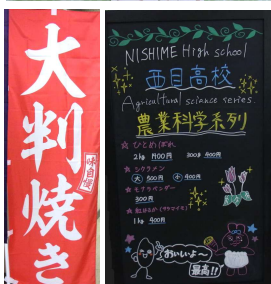 大判焼き
味自慢
NISHIME High school
西目高校
Agricultural science series.
農業科学系列
☆ ひとめぼれ
2kg 900円 300g 400円
☆ シクラメン
大 500円 小 400円
☆ モアラベンダー
300円
☆ 紅はるか(サツマイモ)
1kg 400円
おいしいよ〜
最高!!